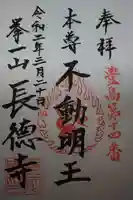 奉拝
豊島第十四番
本尊
不動明王
令和二年三月二十日
峯一山
長徳寺